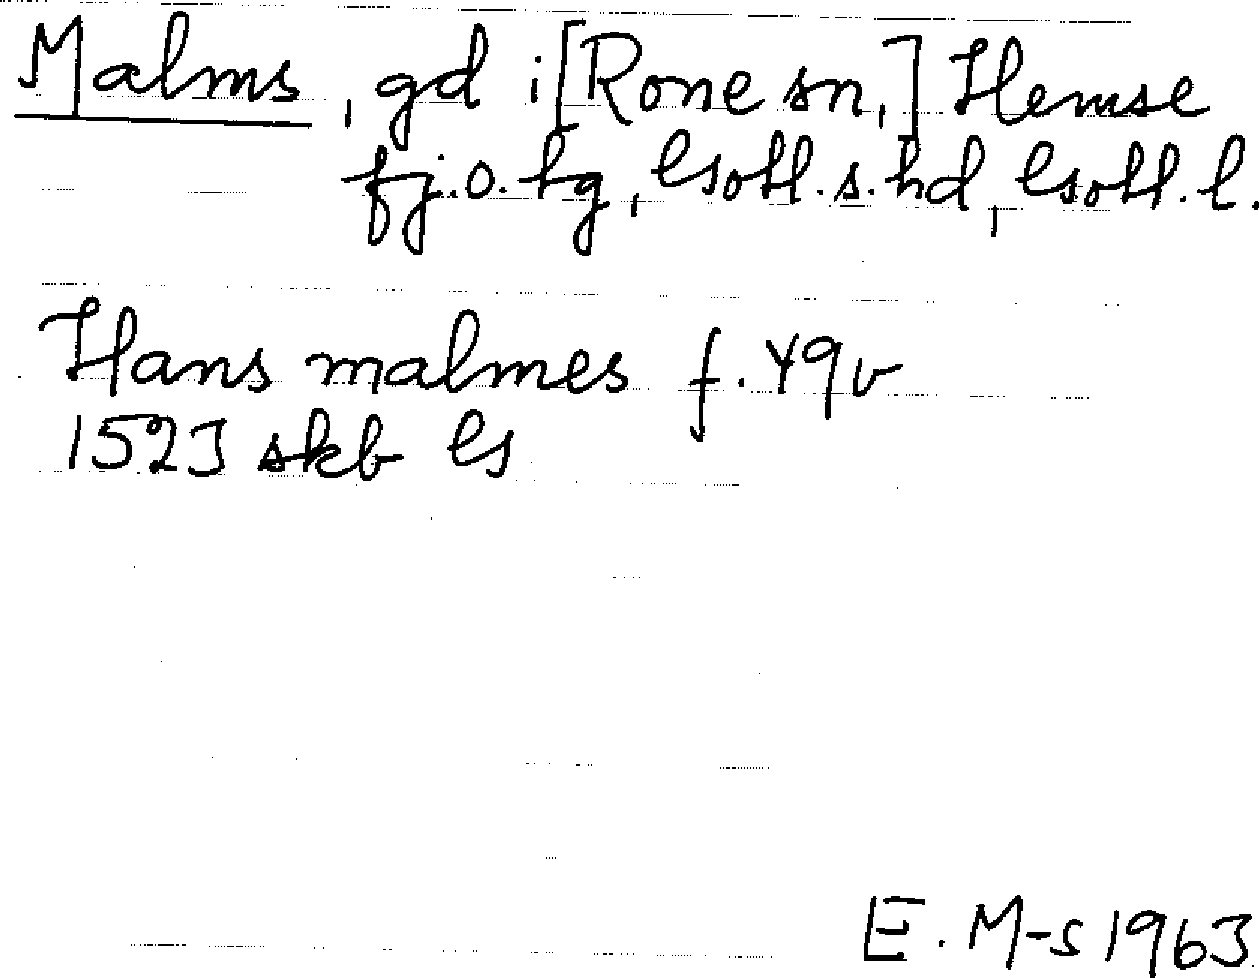 Malms, gd i [Rone sn,] Hemse
fj. o. tg, Gotl. s. hd, Gotl. l.
Hans malmes f. 49v
1523 skb G
E. M-s 1963